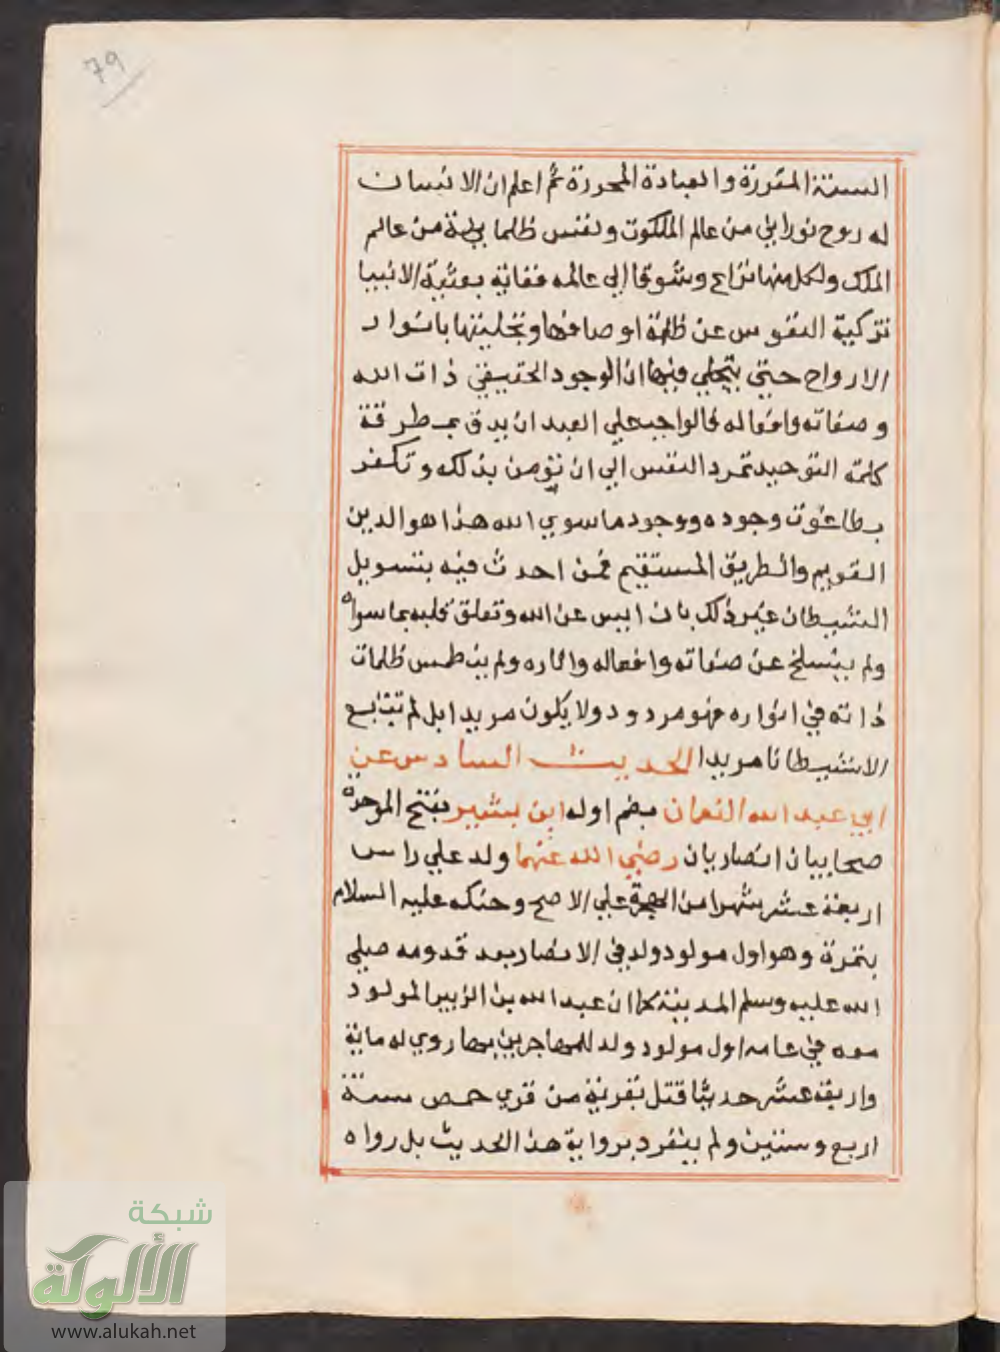 79
السنة المقررة والعبادة المحررة ثم اعلم ان الانسان
له روح نوراني من عالم الملكوت ونفس ظلمانية من عالم
الملك ولكل منها نزاع وشوقا الي عالمه فغاية بعثية الانبيا
تزكية النفوس عن ظلمة اوصافها وتحليتها بانوار
الارواح حتي يتجلي فيها ان الوجود الحقيقي ذات الله
وصفاته وافعاله فالواجب علي العبد ان يدق بمطرقة
كلمة التوحيد تمرد النفس الي ان تؤمن بذلك وتكفر
بطاغوت وجوده ووجود ما سوي الله هذا هو الدين
القويم والطريق المستقيم فمن احدث فيه بتسويل
الشيطان غير ذلك بان ايس عن الله وتعلق قلبه بما سواه
ولم ينسلخ عن صفاته وافعاله واثاره ولم ينطمس ظلمات
ذاته في انواره فهو مردود ولا يكون مريدا بل لم تتبع
الا شيطانا مريدا الحديث السادس عن
ابي عبد الله النعمان بضم اوله ابن بشير بفتح الموحدة
صحابيان انصاريان رضي الله عنهما ولد علي راس
اربعة عشر شهرا من الهجرة علي الاصح وحنكه عليه السلام
بتمرة وهو اول مولود ولد في الانصار بعد قدومه صلي
الله عليه وسلم المدينة كما ان عبد الله بن الزبير المولود
معه في عامه اول مولود ولد للمهاجرين بها روي له ماية
واربعة عشر حديثا قتل بقرية من قري حمص سنة
اربع وستين ولم ينفرد برواية هذا الحديث بل رواه
شبكة
الألوكة
www.alukah.net